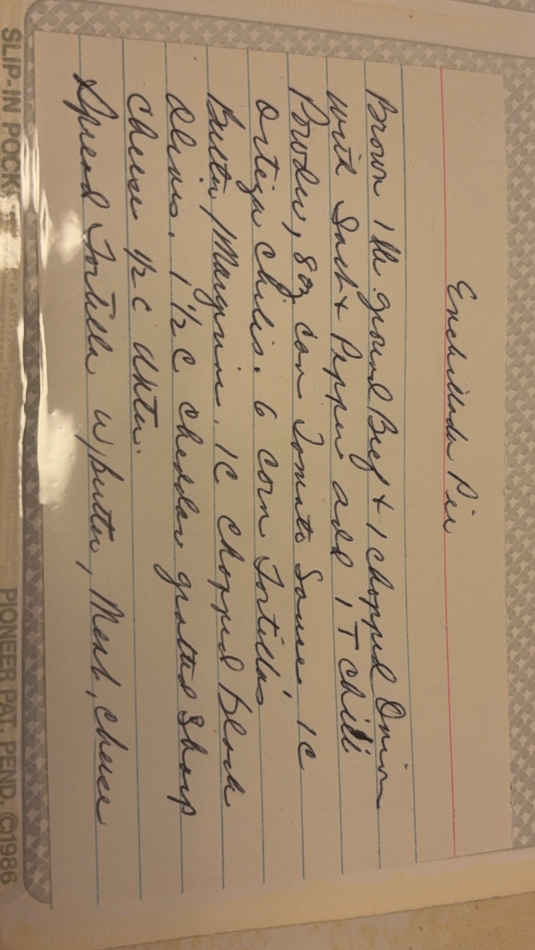 Enchillada Pie
Brown 1 lb. ground Beef + 1 chopped Onion
with Salt + Pepper add 1 T Chili
Powder, 8 oz can Tomato Sauce 1 C
Ortega Chilis. 6 corn Tortilla's
Butter/Margarine. 1 C chopped black
olives. 1 1/2 C chedder grated sharp
cheese 1/2 c water.
Spread Tortilla w/butter, Meat, cheese
SLIP-IN POCK
PIONEER PAT. PEND. ©1986